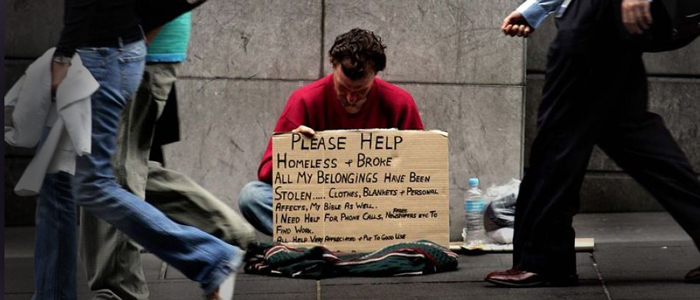 PLEASE HELP
HOMELESS + BROKE
ALL MY BELONGINGS HAVE BEEN
STOLEN..... CLOTHES, BLANKETS + PERSONAL
AFFECTS, MY BIBLE AS WELL.
I NEED HELP FOR PHONE CALLS, NEWSPAPERS ETC TO
FIND WORK.
ALL HELP VERY APPRECIATED + PUT TO GOOD USE